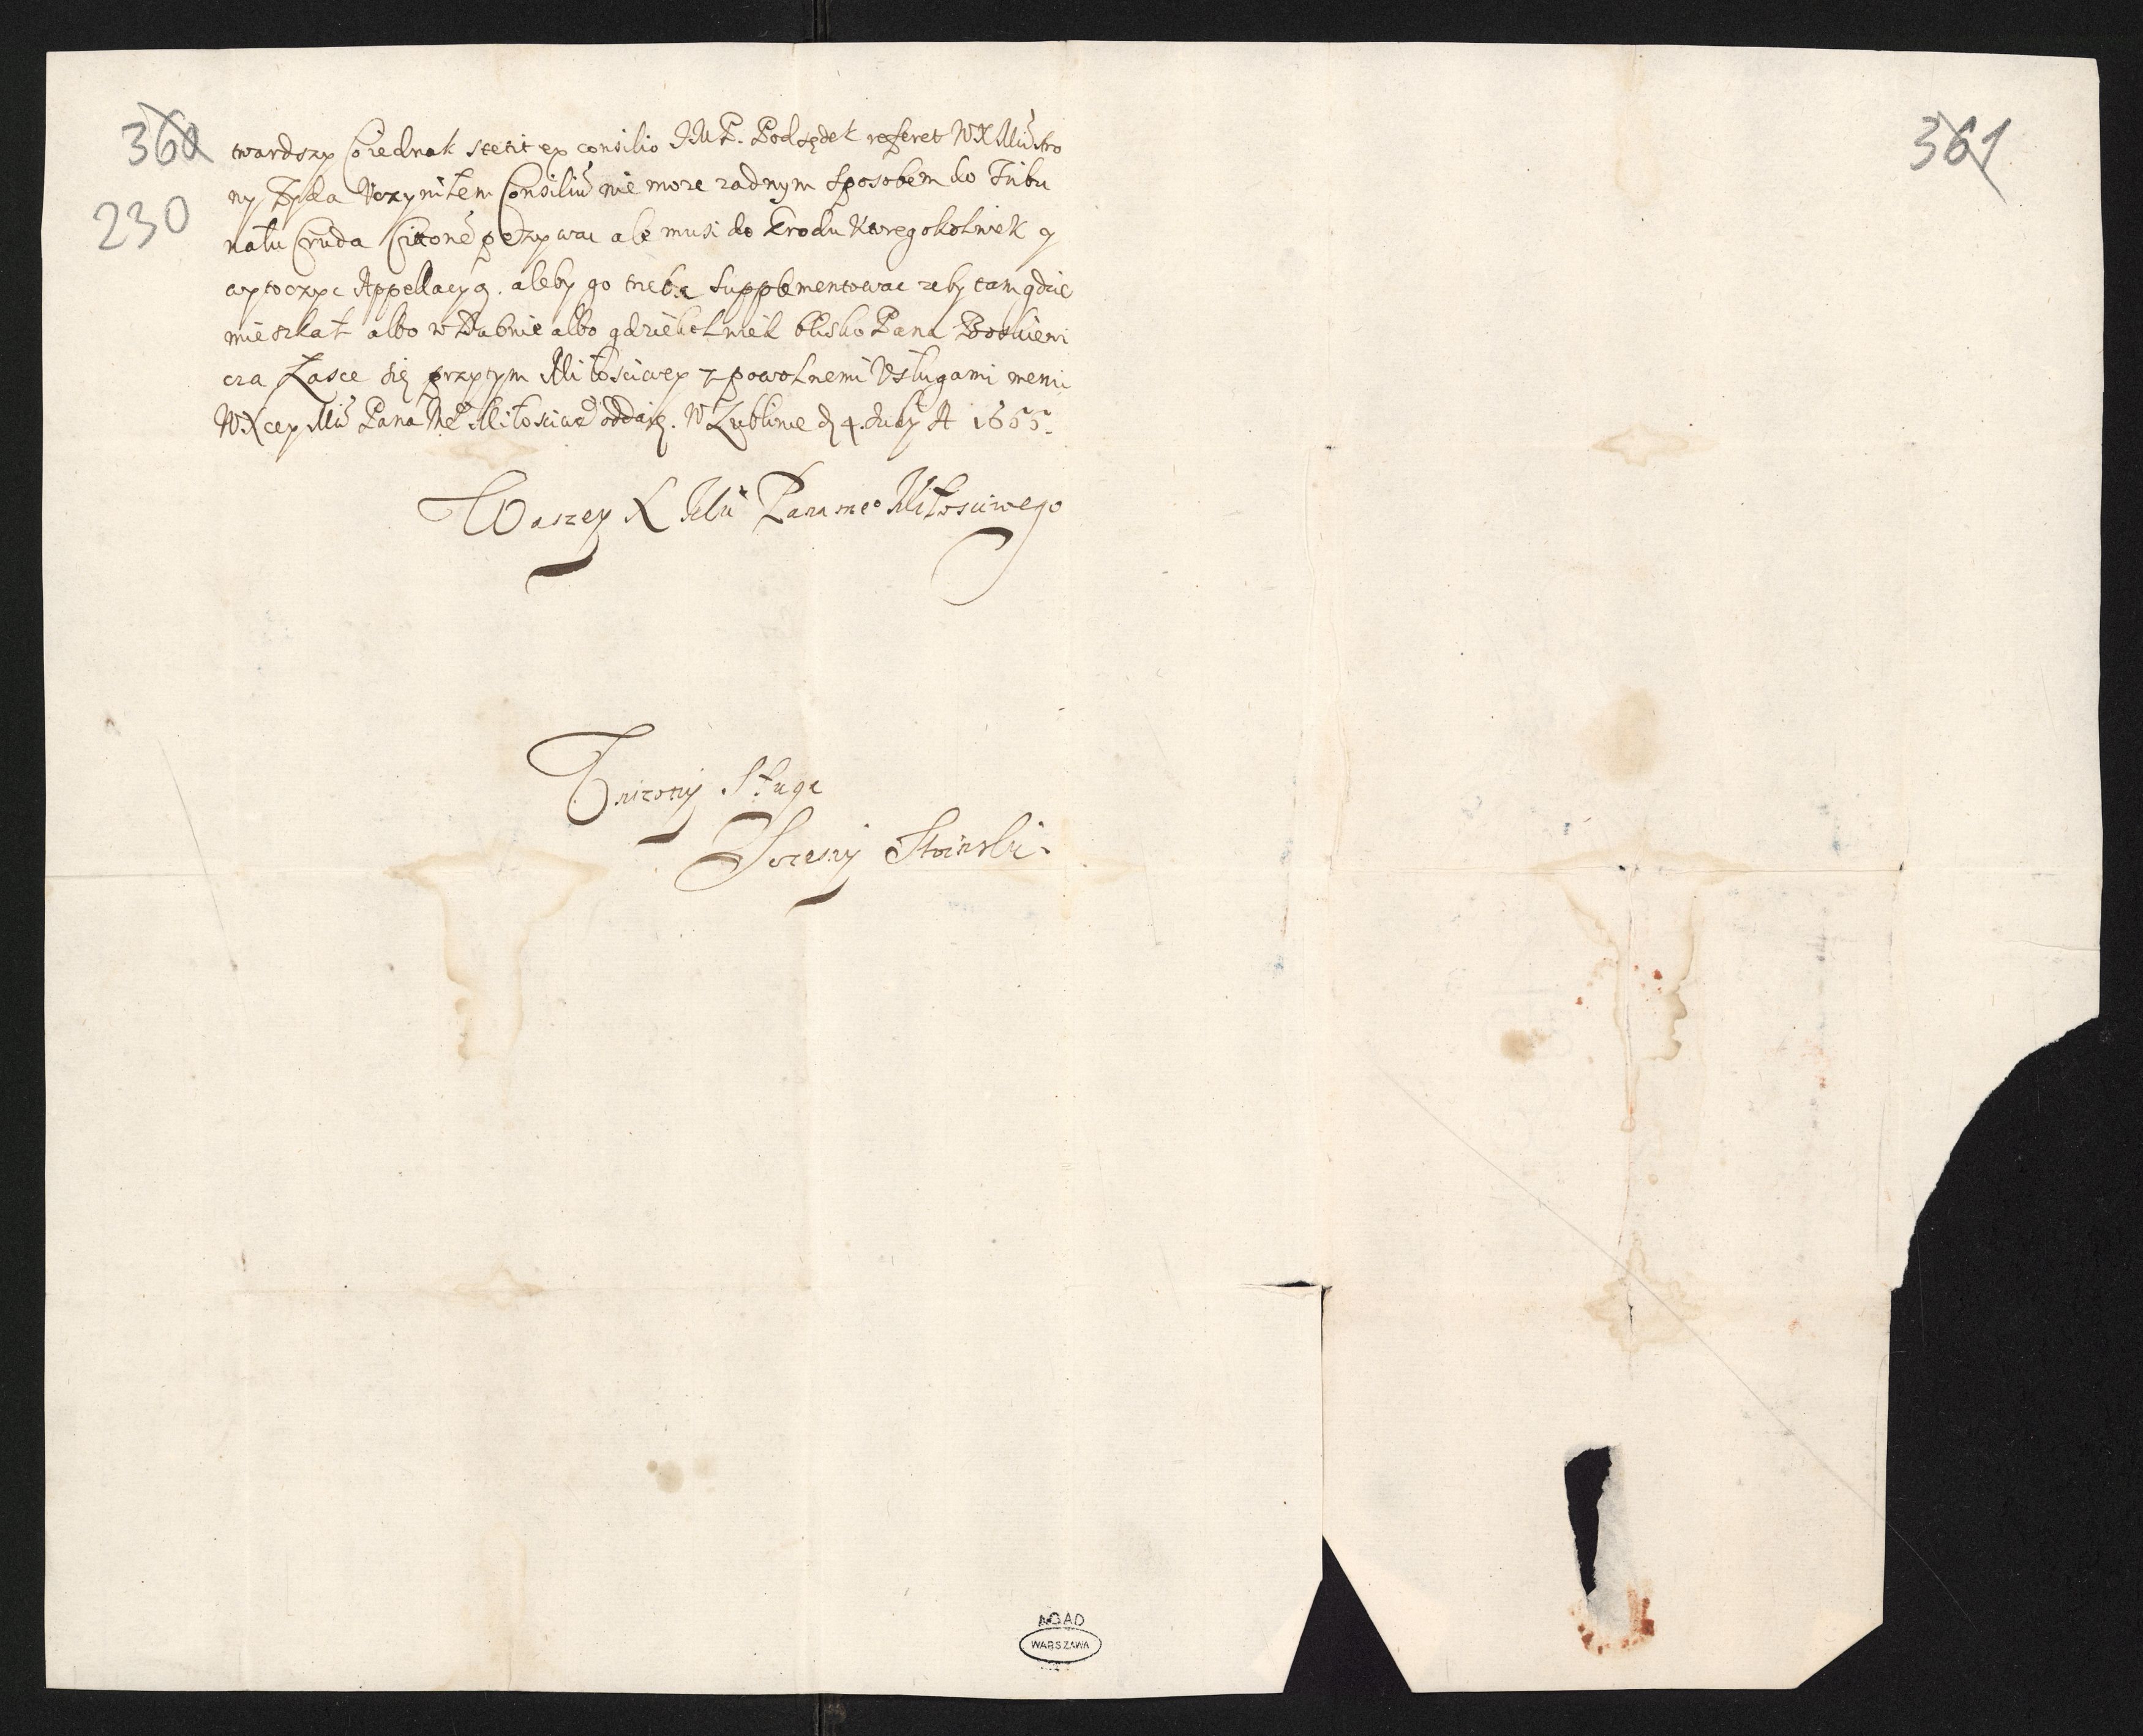 360
361
230
twardszy Co iednak stetit ex consilio JMP. Podsędek referet WXMci stro
ny Zyda Uczyniłem Consiliū nie moze zadnym sposobem do Tribu
nału Cruda pozywac ale musi do Grodu ktregokolwiek y
wytoczyc Appellacyą. aleby go trzeba supplementowac zeby tam gdzie
mieszkał albo w Dubnie albo gdziekolwiek blisko Pana
cza Łasce się przytym Miłosciwey z powolnemi Usługami memi
WXcey Mci Pana Me Miłosciwe oddaię. W Lublinie d 4. July A 1655.
Waszey X Mci Pana meo Miłosciwego
Unizony Sługa
Sczesny Stoinski
AGAD
WARSZAWA